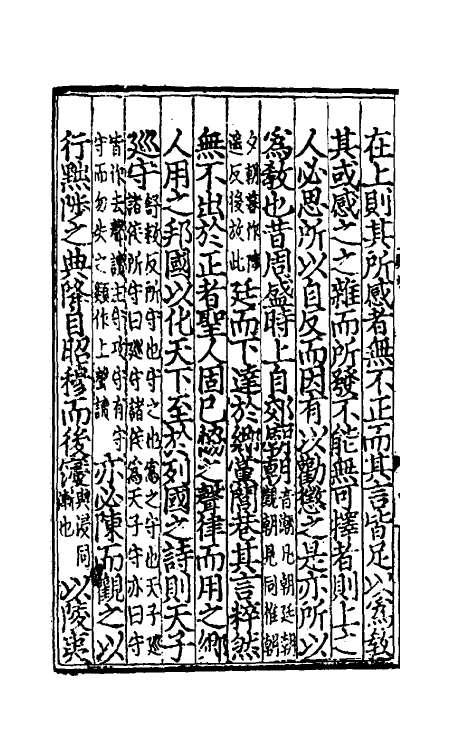 在上則其所感者無不正而其言皆足以爲教
其或感之之雜而所發不能無可擇者則上之
人必思所以自反而因有以勸懲之是亦所以
爲教也昔周盛時上自郊廟朝音潮凡朝廷朝覲朝見同惟朝
夕朝暮作陟遥反後放此廷而下達於鄉黨閭巷其言粹然
無不出於正者聖人固已協之聲律而用之鄉
人用之邦國以化天下至於列國之詩則天子
廵守舒救反所守也守之也爲之守也天子廵諸侯所守曰廵守諸侯爲天子守亦曰守
皆作去聲讀主守攻守有守守而勿失之類作上聲讀亦必陳而觀之以
行黜陟之典降自昭穆而後寖與浸同漸也以陵夷